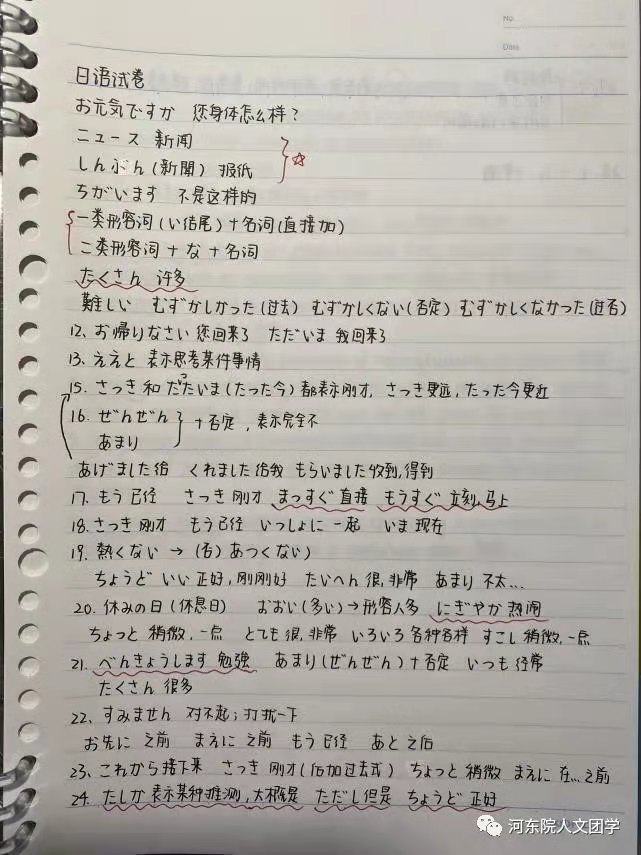 No.
Date
日语试卷
お元気ですか 您身体怎么样？
ニュース 新闻
しんぶん(新聞) 报纸
ちがいます 不是这样的
一类形容词(い结尾)+名词(直接加)
二类形容词+な+名词
たくさん 许多
難しい むずかしかった(过去) むずかしくない(否定) むずかしくなかった(过否)
12、お帰りなさい 您回来了 ただいま 我回来了
13、ええと 表示思考某件事情
15、さっき和 たったいま(たった今)都表示刚才，さっき更远，たった今更近
16、ぜんぜん
あまり
+否定，表示完全不
あげました给 くれました给我 もらいました收到,得到
17、もう 已经 さっき 刚才 まっすぐ 直接 もうすぐ 立刻,马上
18、さっき 刚才 もう已经 いっしょに 一起 いま 现在
19、熱くない → (否)あつくない)
ちょうど いい 正好，刚刚好 たいへん 很,非常 あまり 不太...
20、休みの日(休息日) おおい(多い)→形容人多 にぎやか 热闹
ちょっと 稍微,一点 とても 很,非常 いろいろ 各种各样 すこし 稍微,一点
21、べんきょうします 勉強 あまり(ぜんぜん)+否定 いつも 经常
たくさん 很多
22、すみません 对不起；打扰一下
お先に 之前 まえに 之前 もう 已经 あと 之后
23、これから 接下来 さっき 刚才(后加过去式) ちょっと 稍微 まえに 在...之前
24、たしか 表示某种推测,大概是 ただし但是 ちょうど 正好
河东院人文团学